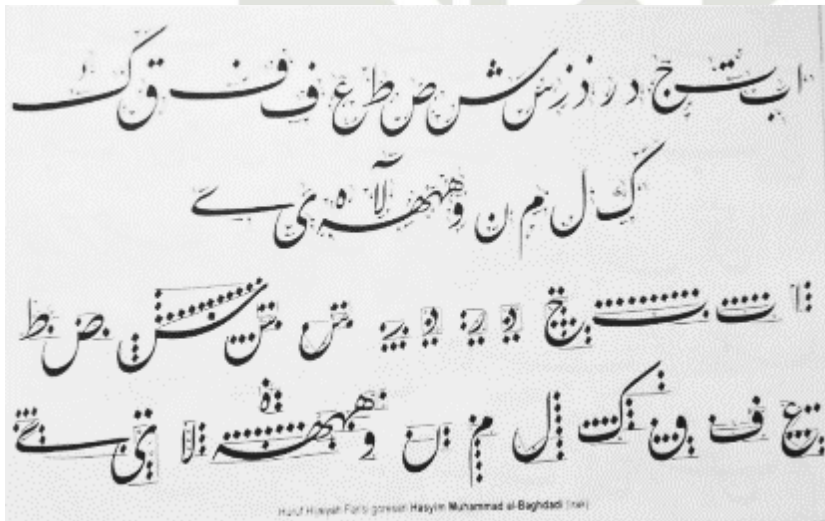 ا ب ت ج د ر ذ ز س ش ص ط ع ف ف ق ک
ک ل م ن و هههـ لا ه ی ے
ا ت ب ج د ر د ر س س س ص ط
ع ف ق ک ل م ں و هههـ ه لا ی ے
Huruf Hijaiyah Farisi goresan Hasyim Muhammad al-Baghdadi (Irak)